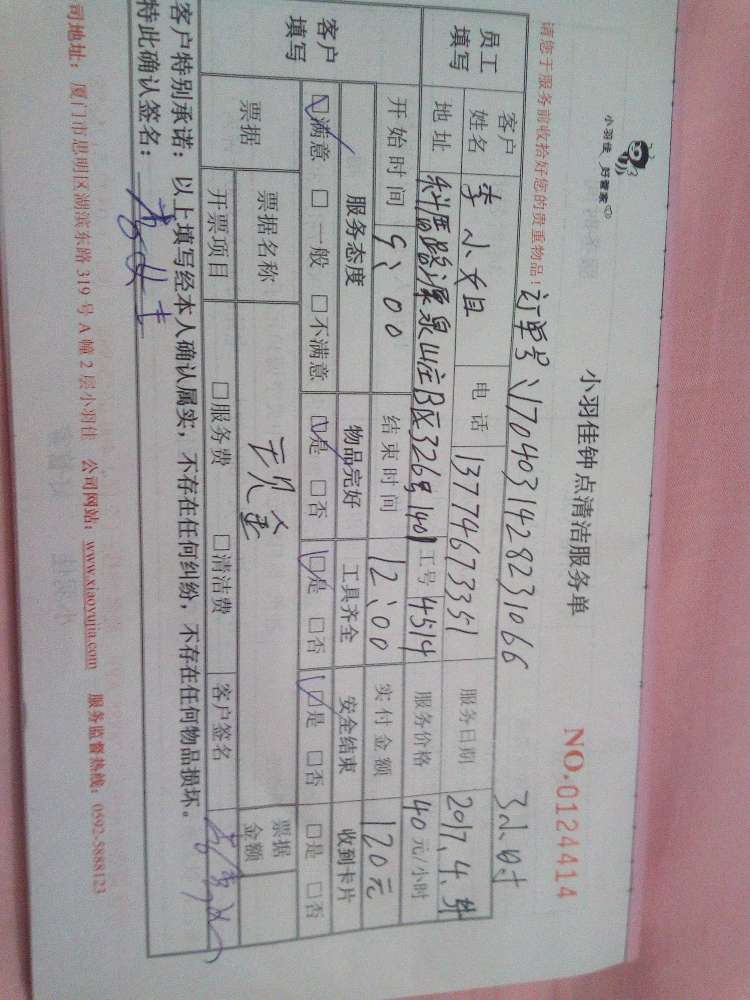 小羽佳 好管家
小羽佳钟点清洁服务单
NO.0124414
请您于服务前收拾好您的贵重物品！
订单号、1704031428231066
3小时
员工填写
客户姓名 李小姐 电话 13774673351 服务日期 2017.4.
地址 源泉山庄B区326号1401 工号 4514 服务价格 40元/小时
开始时间 9:00 结束时间 12:00 实付金额 120元
客户填写
服务态度 物品完好 工具齐全 安全结束 收到卡片
☑满意 □一般 □不满意 ☑是 □否 ☑是 □否 ☑是 □否 □是 □否
票据 票据名称 现金 票据金额
开票项目 □服务费 □清洁费 客户签名
客户特别承诺：以上填写经本人确认属实，不存在任何纠纷，不存在任何物品损坏。
特此确认签名：
司地址：厦门市思明区湖滨东路319号A幢2层小羽佳 公司网站：www.xiaoyujia.com 服务监督热线：0592-5888123